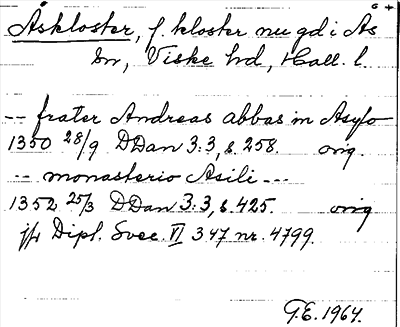 Åskloster, f. kloster nu gd i Ås
sn, Viske hd, Hall. l.
-- frater Andreas abbas in Asylo
1350 28/9 DDan 3:3, s. 258. orig.
-- monasterio Asili ---
1352 25/3 DDan 3:3, s. 425. orig
jfr Dipl. Svec. VI 347 nr. 4799.
T.E. 1964.